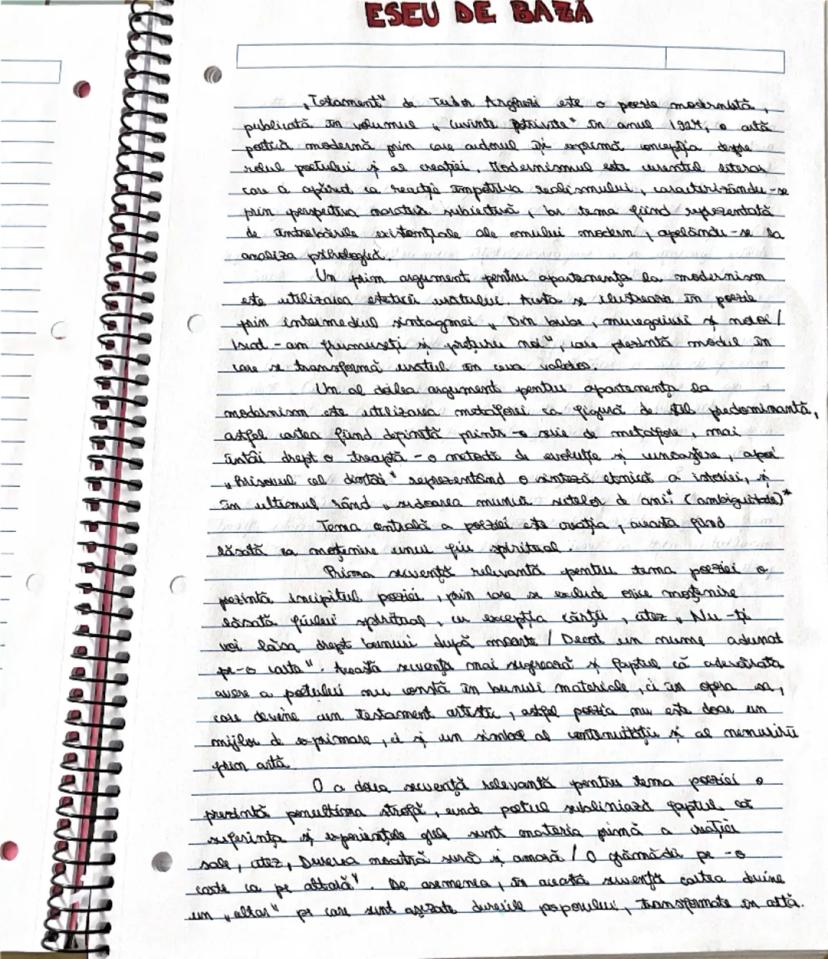 ESEU DE BAZĂ
„Testament" de Tudor Arghezi este o poezie modernistă,
publicată în volumul „Cuvinte potrivite" în anul 1927, o artă
poetică modernă prin care autorul își exprimă concepția despre
rolul poetului și al creației. Modernismul este curentul literar
care a apărut ca reacție împotriva realismului, caracterizându-se
prin perspectiva narativă subiectivă, iar tema fiind reprezentată
de întrebările existențiale ale omului modern, apelându-se la
analiza psihologică.
Un prim argument pentru apartenența la modernism
este utilizarea esteticii urâtului. Aceasta se ilustrează în poezie
prin intermediul sintagmei „Din bube, mucegaiuri și noroi /
Iscat-am frumuseți și prețuri noi", care prezintă modul în
care se transformă urâtul în ceva valoros.
Un al doilea argument pentru apartenența la
modernism este utilizarea metaforei ca figură de stil predominantă,
astfel cartea fiind definită printr-o serie de metafore, mai
întâi drept o treaptă - o metodă de evoluție și cunoaștere, apoi
„hrisovul cel dintâi" reprezentând o sinteză etnică a istoriei, și
în ultimul rând „sudoarea muncii sutelor de ani" (ambiguitate)*
Tema centrală a poeziei este creația, aceasta fiind
lăsată ca moștenire unui fiu spiritual.
Prima secvență relevantă pentru tema poeziei o
prezintă incipitul poeziei, prin care se exclude orice moștenire
lăsată fiului spiritual, cu excepția cărții, citez „Nu-ți
voi lăsa drept bunuri după moarte / Decât un nume adunat
pe-o carte". Această secvență mai sugerează și faptul că adevărata
avere a poetului nu constă în bunuri materiale, ci în opera sa,
care devine un testament artistic, astfel poezia nu este doar un
mijloc de exprimare, ci și un simbol al continuității și al nemuririi
prin artă.
O a doua secvență relevantă pentru tema poeziei o
prezintă penultima strofă, unde poetul subliniază faptul că
suferința și experiențele grele sunt materia primă a creației
sale, citez, Durerea noastră surdă și amară / O grămădii pe-o
coardă ca pe altară". De asemenea, în această secvență cartea devine
un „altar" pe care sunt așezate durerile poporului, transformate în artă.